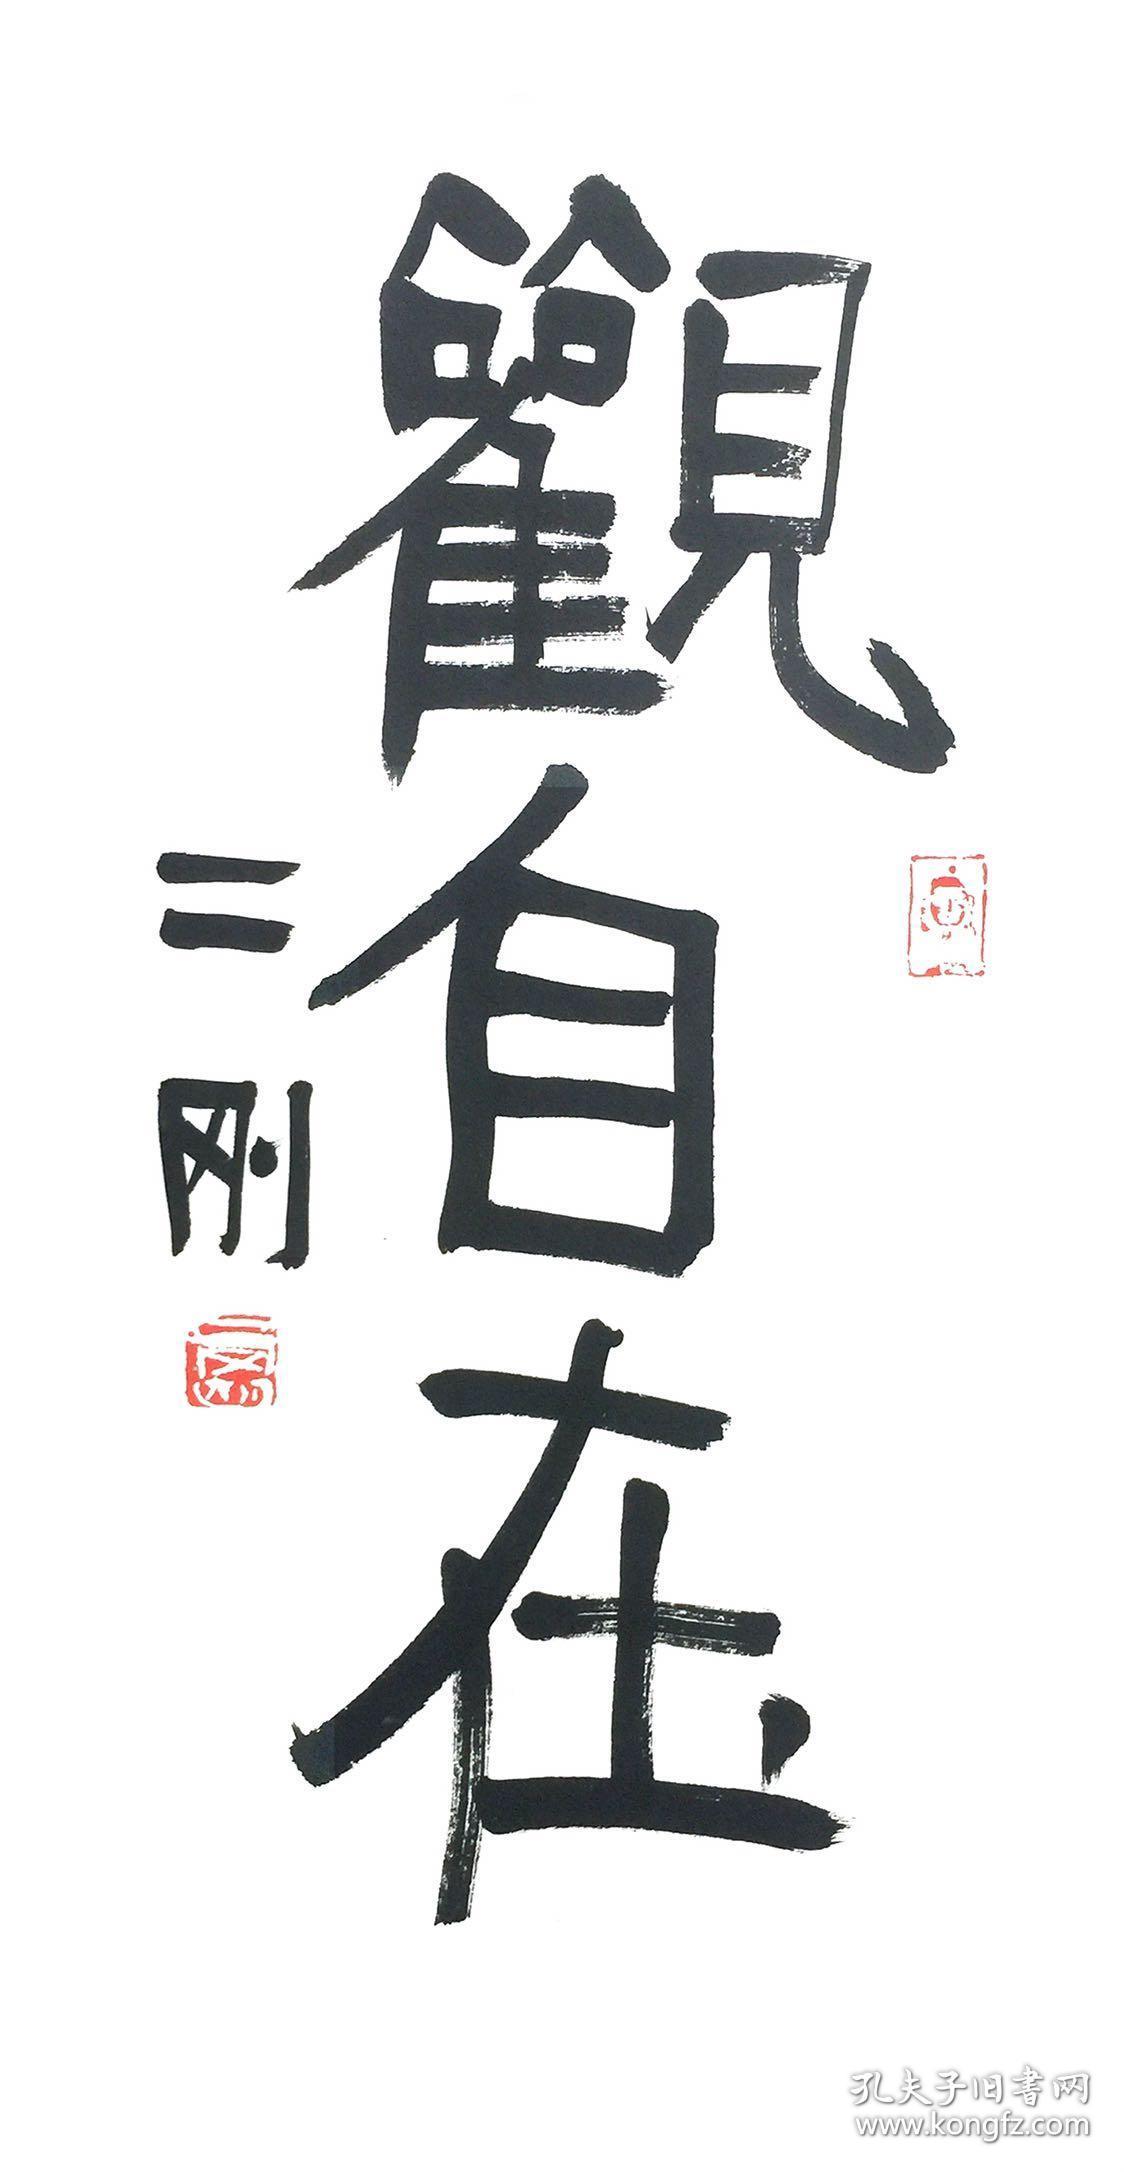 觀自在
二刚
孔夫子旧书网
www.kongfz.com